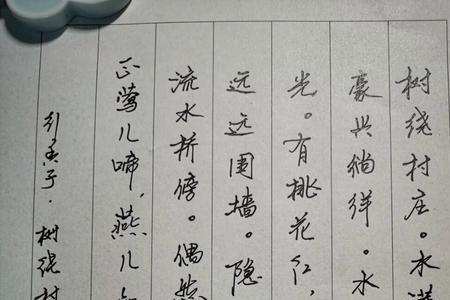 树绕村庄。水满
豪兴徜徉。水
光。有桃花红，
远远围墙。隐
流水桥傍。偶然
正莺儿啼，燕儿
引香子·树绕村